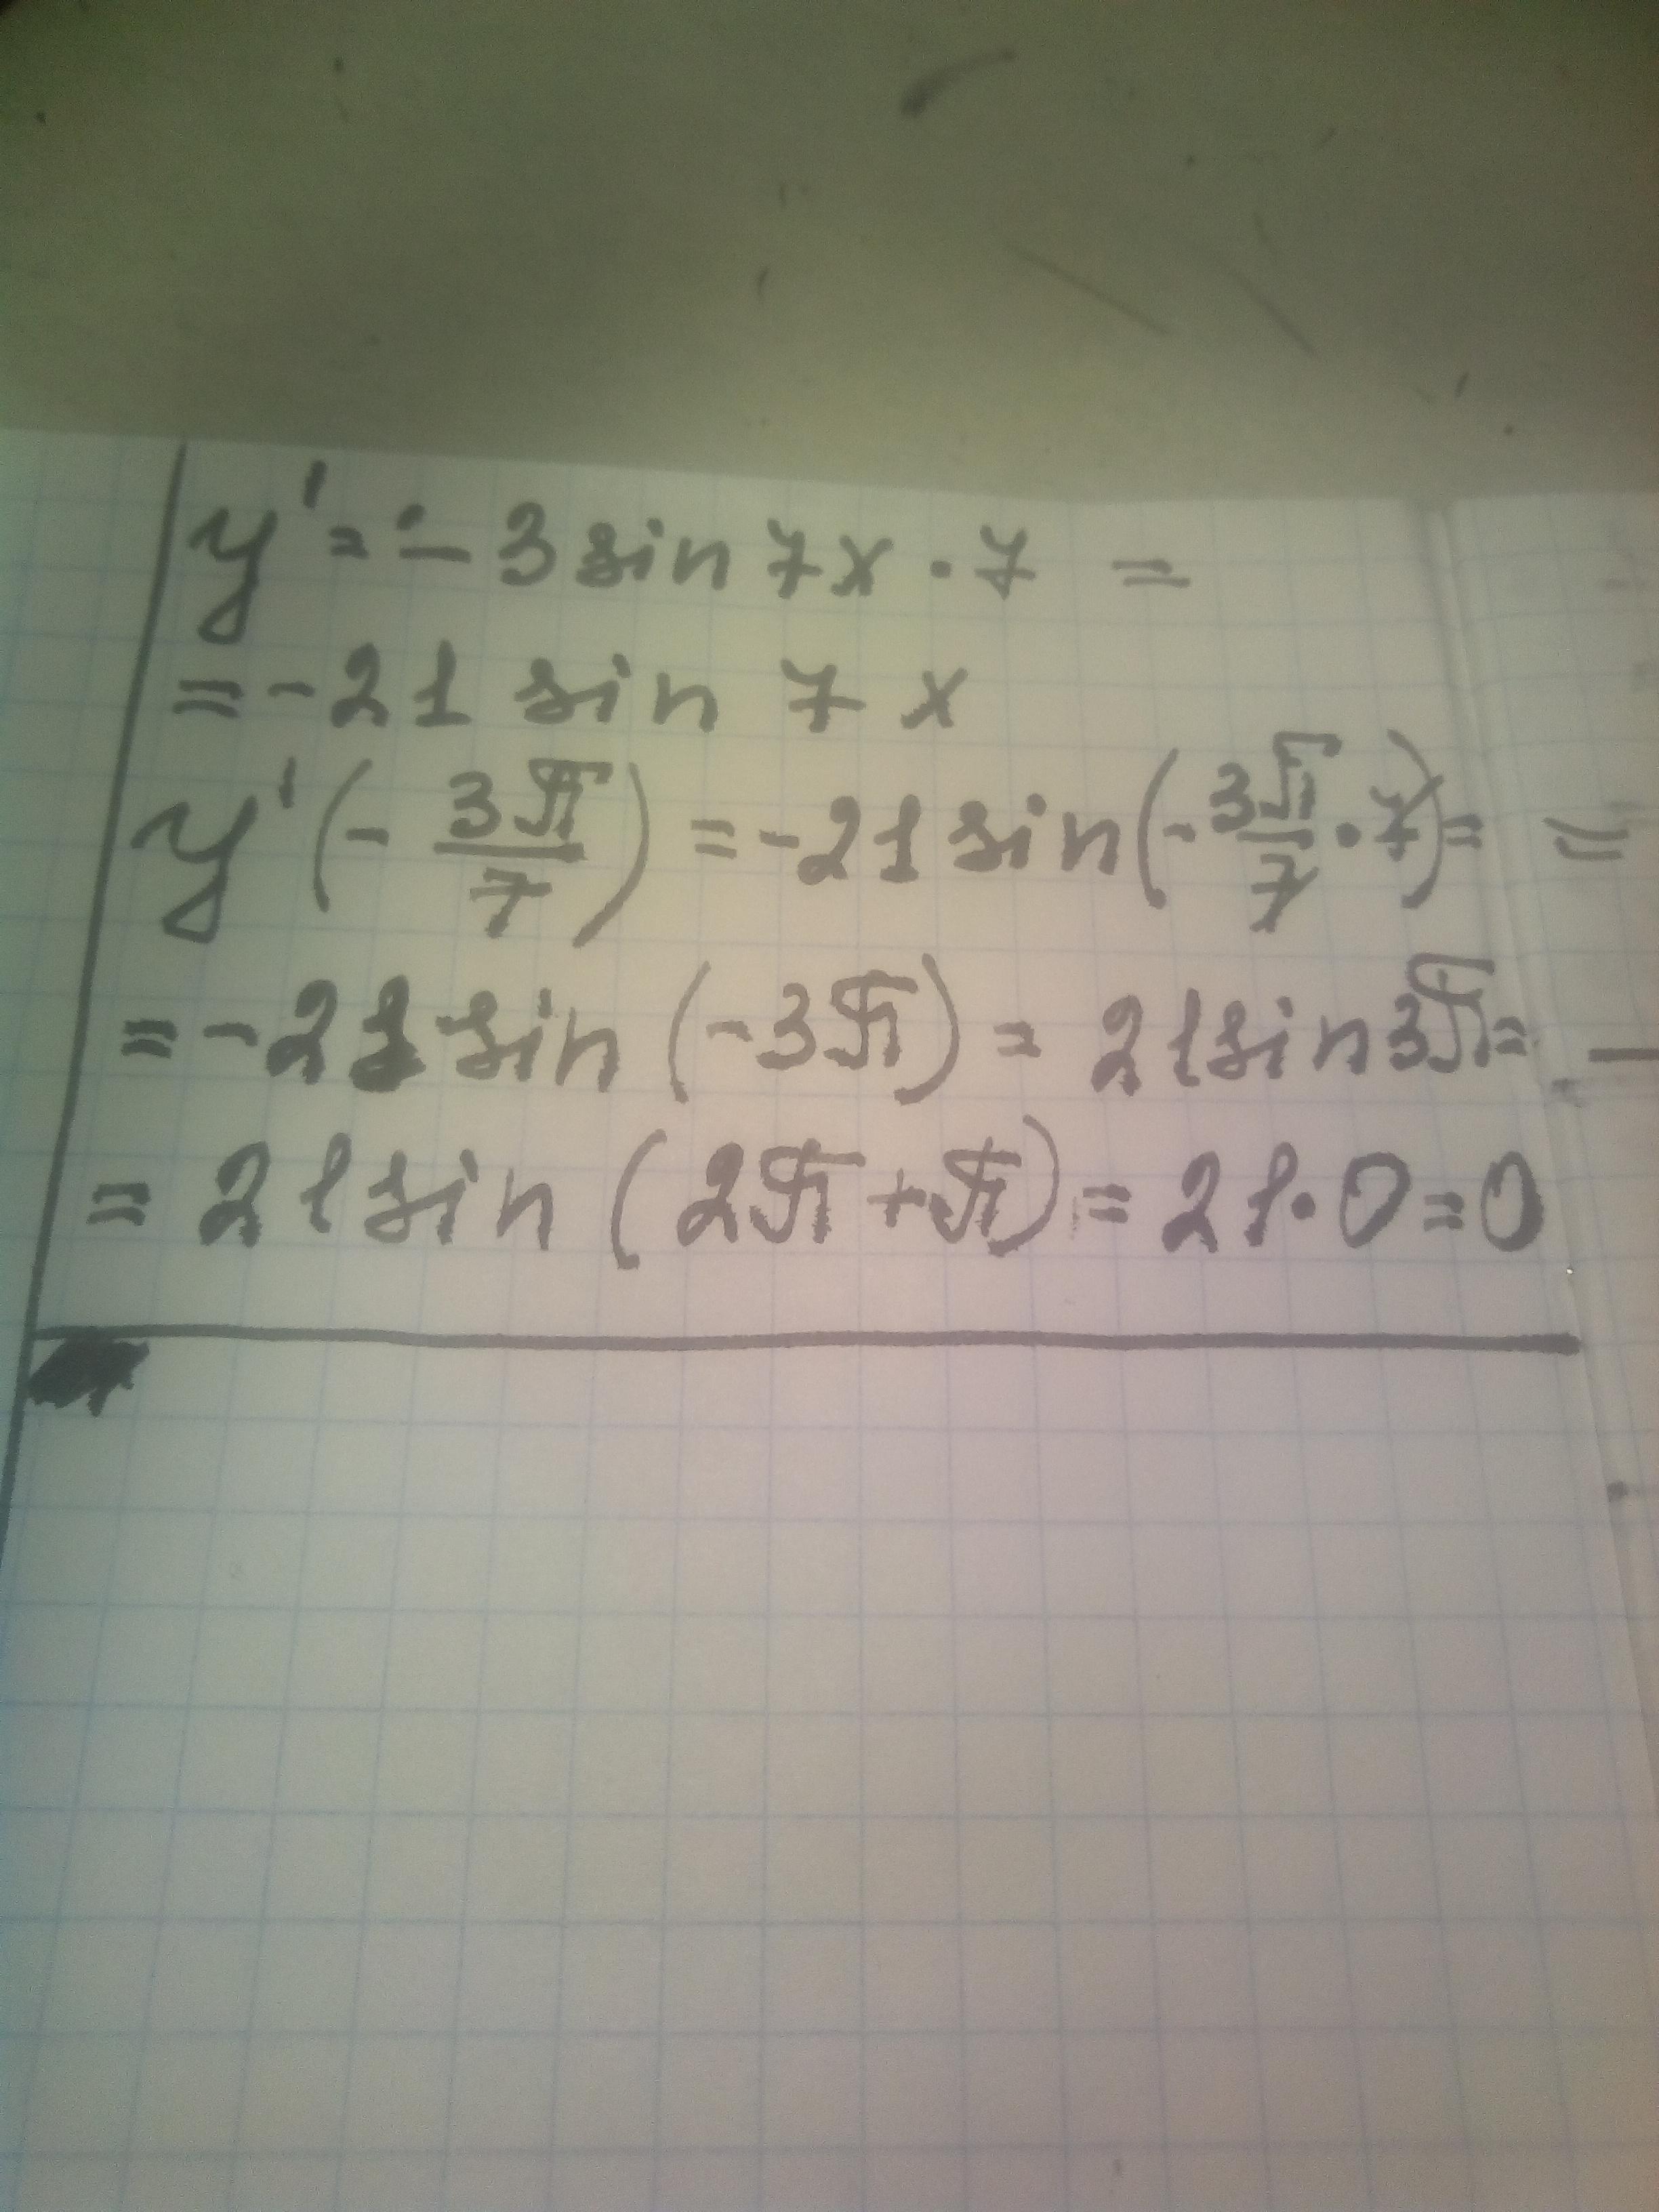 y' = - 3 sin 7x · 7 =
= -21 sin 7x
y'(- 3π/7) = -21 sin(- 3π/7 · 7) = =
= -21 sin (-3π) = 21 sin 3π =
= 21 sin (2π + π) = 21 · 0 = 0